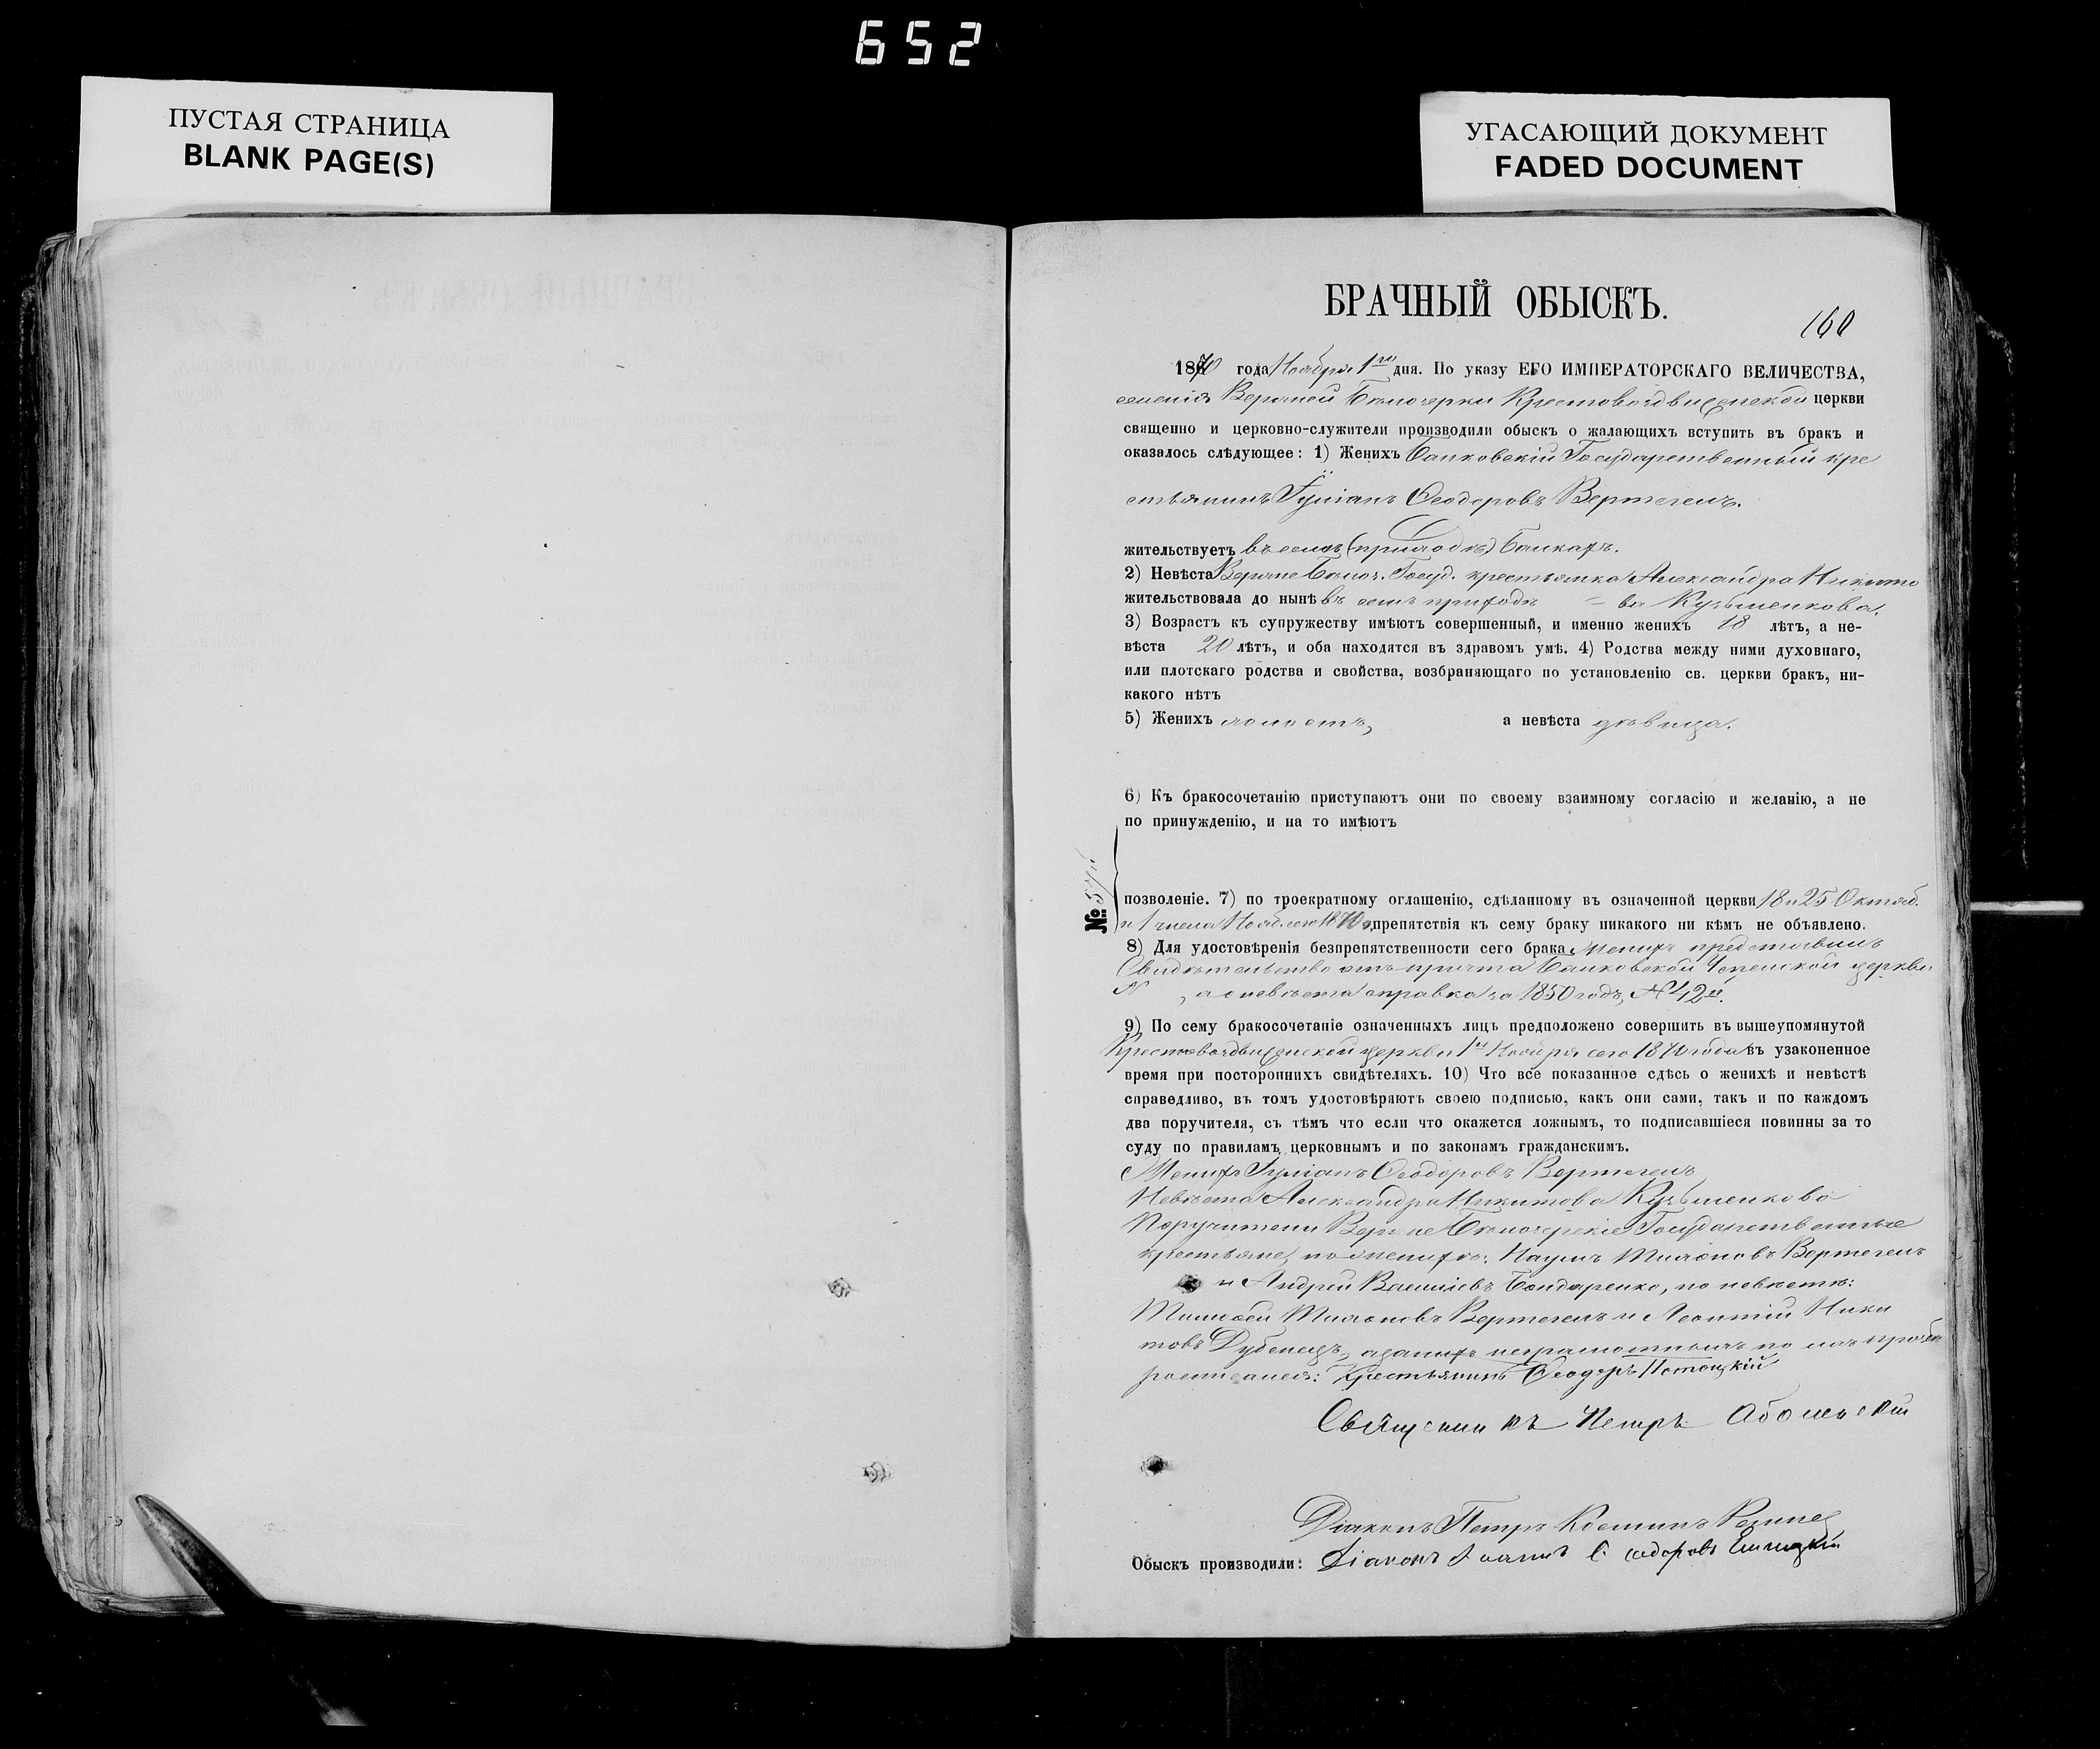 652
ПУСТАЯ СТРАНИЦА
BLANK PAGE(S)
УГАСАЮЩИЙ ДОКУМЕНТ
FADED DOCUMENT
БРАЧНЫЙ ОБЫСКЪ.
160
1870 года Ноября 1го дня. По указу ЕГО ИМПЕРАТОРСКАГО ВЕЛИЧЕСТВА,
селенія Верхней Бѣлозерки Крестовоздвиженской церкви
священно и церковно-служители производили обыскъ о жалающихъ вступить въ бракъ и
оказалось слѣдующее: 1) Женихъ Балковскій Государственный кре
стьянинъ Іуліанъ Ѳеодоровъ Вертегелъ.
жительствуетъ въ селѣ (приходѣ) Балкахъ.
2) Невѣста Верхне Бѣлоз. Госуд. крестьянка Александра Никито
жительствовала до нынѣ въ семъ приходѣ = ва Кузьменкова.
3) Возрастъ къ супружеству имѣютъ совершенный, и именно женихъ 18 лѣтъ, а не-
вѣста 20 лѣтъ, и оба находятся въ здравомъ умѣ. 4) Родства между ними духовнаго,
или плотскаго родства и свойства, возбраняющаго по установленію св. церкви бракъ, ни-
какого нѣтъ
5) Женихъ холостъ, а невѣста дѣвица.
6) Къ бракосочетанію приступаютъ они по своему взаимному согласію и желанію, а не
по принужденію, и на то имѣютъ
№
позволеніе. 7) по троекратному оглашенію, сдѣланному въ означенной церкви 18 и 25 Октяб.
и 1 числа Нояб. сего 1870 г. препятствія къ сему браку никакого ни кѣмъ не объявлено.
8) Для удостовѣренія безпрепятственности сего брака Женихъ представилъ
Свидѣтельство отъ причта Балковской церкви
N , а о невѣстѣ справка за 1850 годъ, N 42й.
9) По сему бракосочетаніе означенныхъ лицъ предположено совершить въ вышеупомянутой
Крестовоздвиженской церкви 1го Ноября сего 1870 года въ узаконенное
время при постороннихъ свидѣтеляхъ. 10) Что все показанное сдѣсь о женихѣ и невѣстѣ
справедливо, въ томъ удостовѣряютъ своею подписью, какъ они сами, такъ и по каждомъ
два поручителя, съ тѣмъ что если что окажется ложнымъ, то подписавшіеся повинны за то
суду по правиламъ церковнымъ и по законамъ гражданскимъ.
Женихъ Іуліанъ Ѳеодоровъ Вертегелъ
Невѣста Александра Никитова Кузьменкова
Поручители Верхне Бѣлозерскіе Государственные
крестьяне, по женихѣ: Наумъ Вертегелъ
и Андрей Василіевъ Бондаренко, по невѣстѣ:
Вертегелъ и Леонтій Ники
товъ Дубенецъ, а за нихъ неграмотныхъ по ихъ прозьбѣ
росписался: Крестьянинъ Ѳеодоръ Потоцкій
Священникъ Петръ
Діаконъ Петръ
Обыскъ производили: Діаконъ Іоаннъ